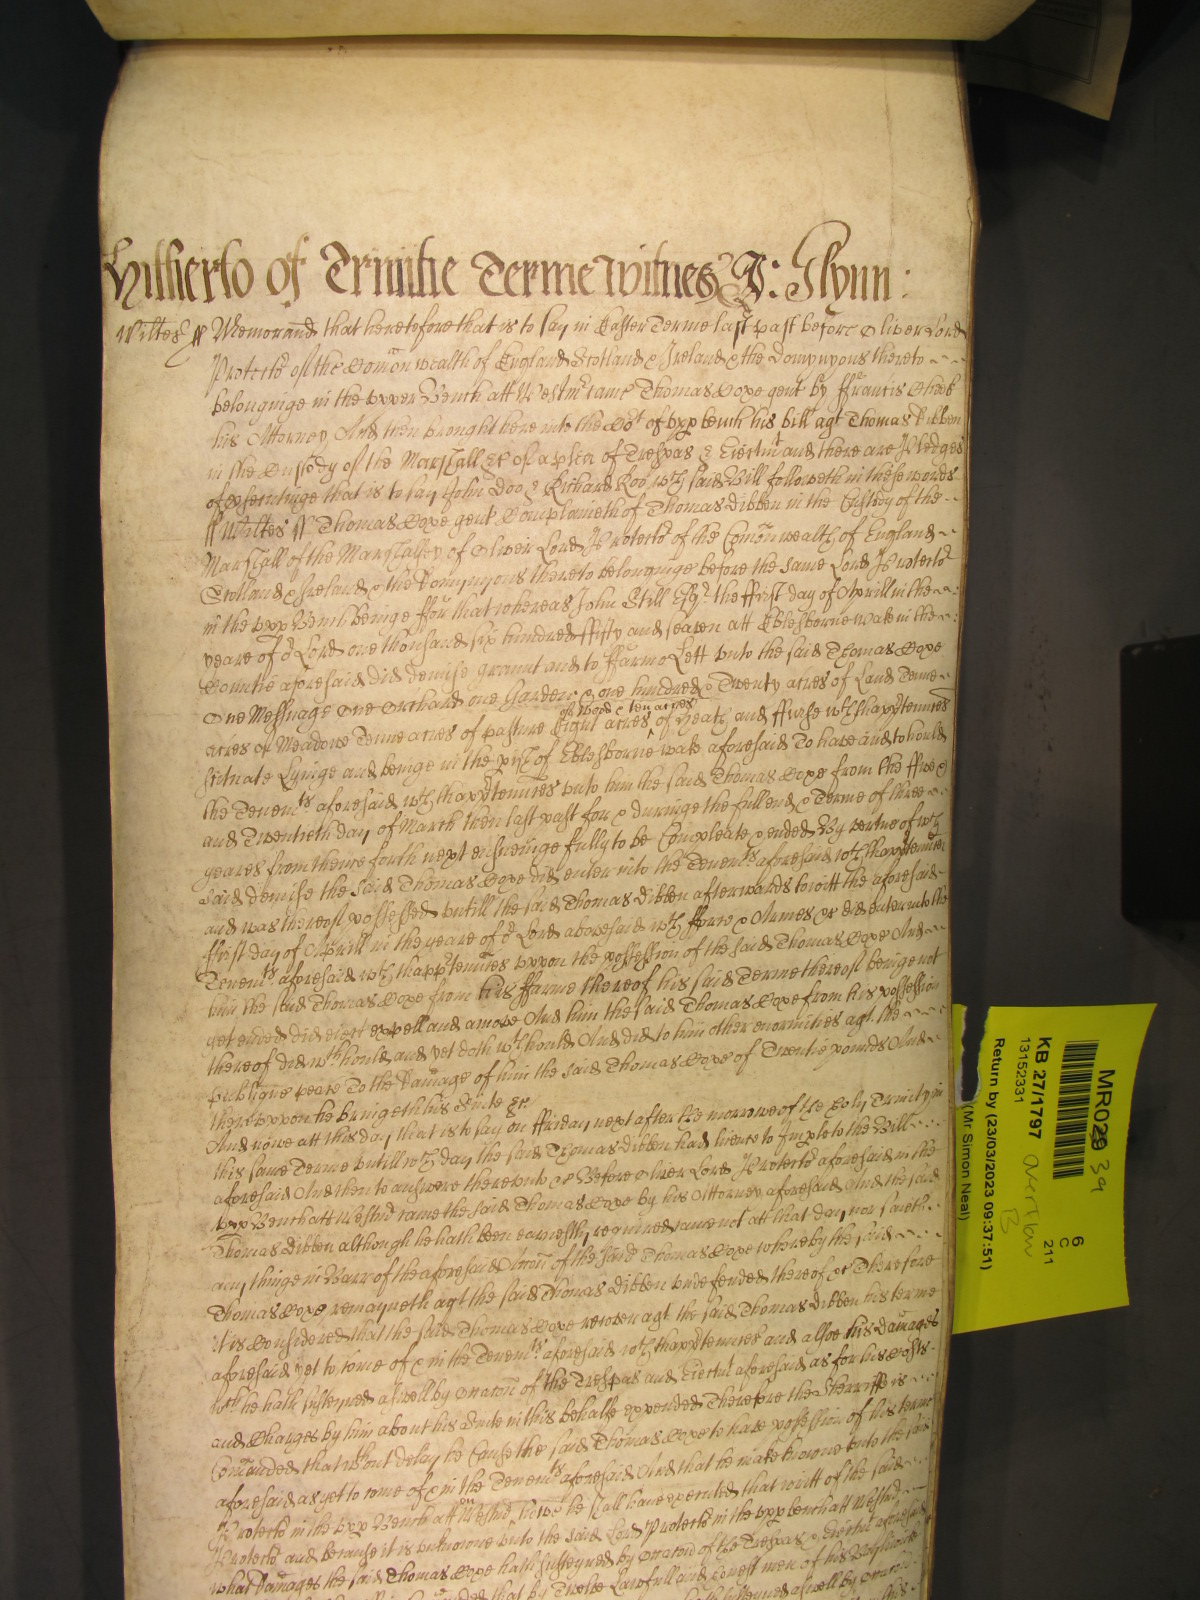 Hitherto of Trinitie Terme witnes J: Glynn:
Wiltes ss Memorand that heretofore that is to say in Easter Terme last past before Oliver Lord
Protector of the Comon wealth of England Scotland & Ireland & the Domynyons thereto
belonginge in the upper Bench att Westmr came Thomas Cope gent by Ffrancis
his Attorney And then brought here into the Cot of upp bench his bill agt Thomas Dibben
in the Custody of the Marshall &c of a plea of Trespas & Eiectmt and there are Pledges
of psecutinge that is to say John Doo & Richard Roo wch said Bill followeth in these words
ss Wiltes ss Thomas Cope gent Complaineth of Thomas Dibben in the Custody of the
Marshall of the Marshalsey of Oliver Lord Protector of the Comonwealth of England
Scotland & Ireland & the Domynyons thereto belonginge before the same Lord Protector
in the upp Bench beinge ffor that whereas John Still Esqr the ffirst day of Aprill in the
yeare of or Lord one thousand six hundred ffifty and seaven att Eblesborne wake in the
Countie aforesaid did demise graunt and to ffarme Lett unto the said Thomas Cope
One Messuage One Orchard one Garden & one hundred & Twenty acres of Land Tenne
of wood & ten acres
acres of Meadowe Tenne acres of pasture Eight acres of heath and ffurse wth thapptennces
scituate Lyinge and beinge in the psh of Eblesborne wake aforesaid To have and to hould
the Tenemts aforesaid wth thapptennces unto him the said Thomas Cope from the ffive
and Twentieth day of March then last past for & duringe the full end & Terme of three
yeares from thence forth next ensueinge fully to be Compleate & ended By vertue of wch
said demise the said Thomas Cope did enter into the Tenemts aforesaid wth thapptennces
and was thereof possessed untill the said Thomas Dibben afterwards towitt the aforesaid
ffirst day of Aprill in the yeare of or Lord abovesaid wth fforce & Armes &c did enter into the
Tenemts aforesaid wth thapptennces uppon the possession of the said Thomas Cope And
him the said Thomas Cope from his ffarme thereof his said Terme thereof beinge not
yet ended did eiect expell and amove And him the said Thomas Cope from his possession
thereof did wthhould and yet doth wthhould And did to him other enormities agt the
publique peace To the Damage of him the said Thomas Cope of Twentie pounds And
thereuppon he bringeth his Suite &c.
And nowe att this day that is to say on ffriday next after the morrowe of the Holy Trinity in
this same Terme untill wch day the said Thomas Dibben had licence to Imple to the Bill
aforesaid And then to answere thereunto &c Before Oliver Lord Protector aforesaid in the
upp Bench att Westmr came the said Thomas Cope by his Attorney aforesaid And the said
Thomas Dibben although he hath been earnestly required came not att that day nor saieth
any thinge in Barr of the aforesaid Accon of the said Thomas Cope whereby the said
Thomas Cope remayneth agt the said Thomas Dibben undefended thereof &c Therefore
It is Considered that the said Thomas Cope recover agt the said Thomas Dibben his terme
aforesaid yet to come of & in the Tenemts aforesaid wth thapptennces and alsoe his damages
wch he hath susteyned aswell by occacon of the Trespas and Eiectmt aforesaid as for his Costs
and Charges by him about his Suite in this behalfe expended Therefore the Sherriffe is
Comanded that wthout delay he Cause the said Thomas Cope to have possession of his terme
aforesaid as yet to come of & in the Tenemts aforesaid And that he make knowne unto the said
Protector in the upp Bench att Westmr howe he shall have executed that writt of the said
Protector and because it is unknowne unto the said Lord Protector in the upp bench att Westmr
what Damages the said Thomas Cope hath susteyned by occacon of the Trespas & Eiectmt aforesaid
that by Twelve Lawfull and honest men of his Baylywicke
susteyned aswell by
MR029 39
KB 27/1797 overflow B
13152331
Return by (23/03/2023 09:37:51)
(Mr Simon Neal)
6
C
211